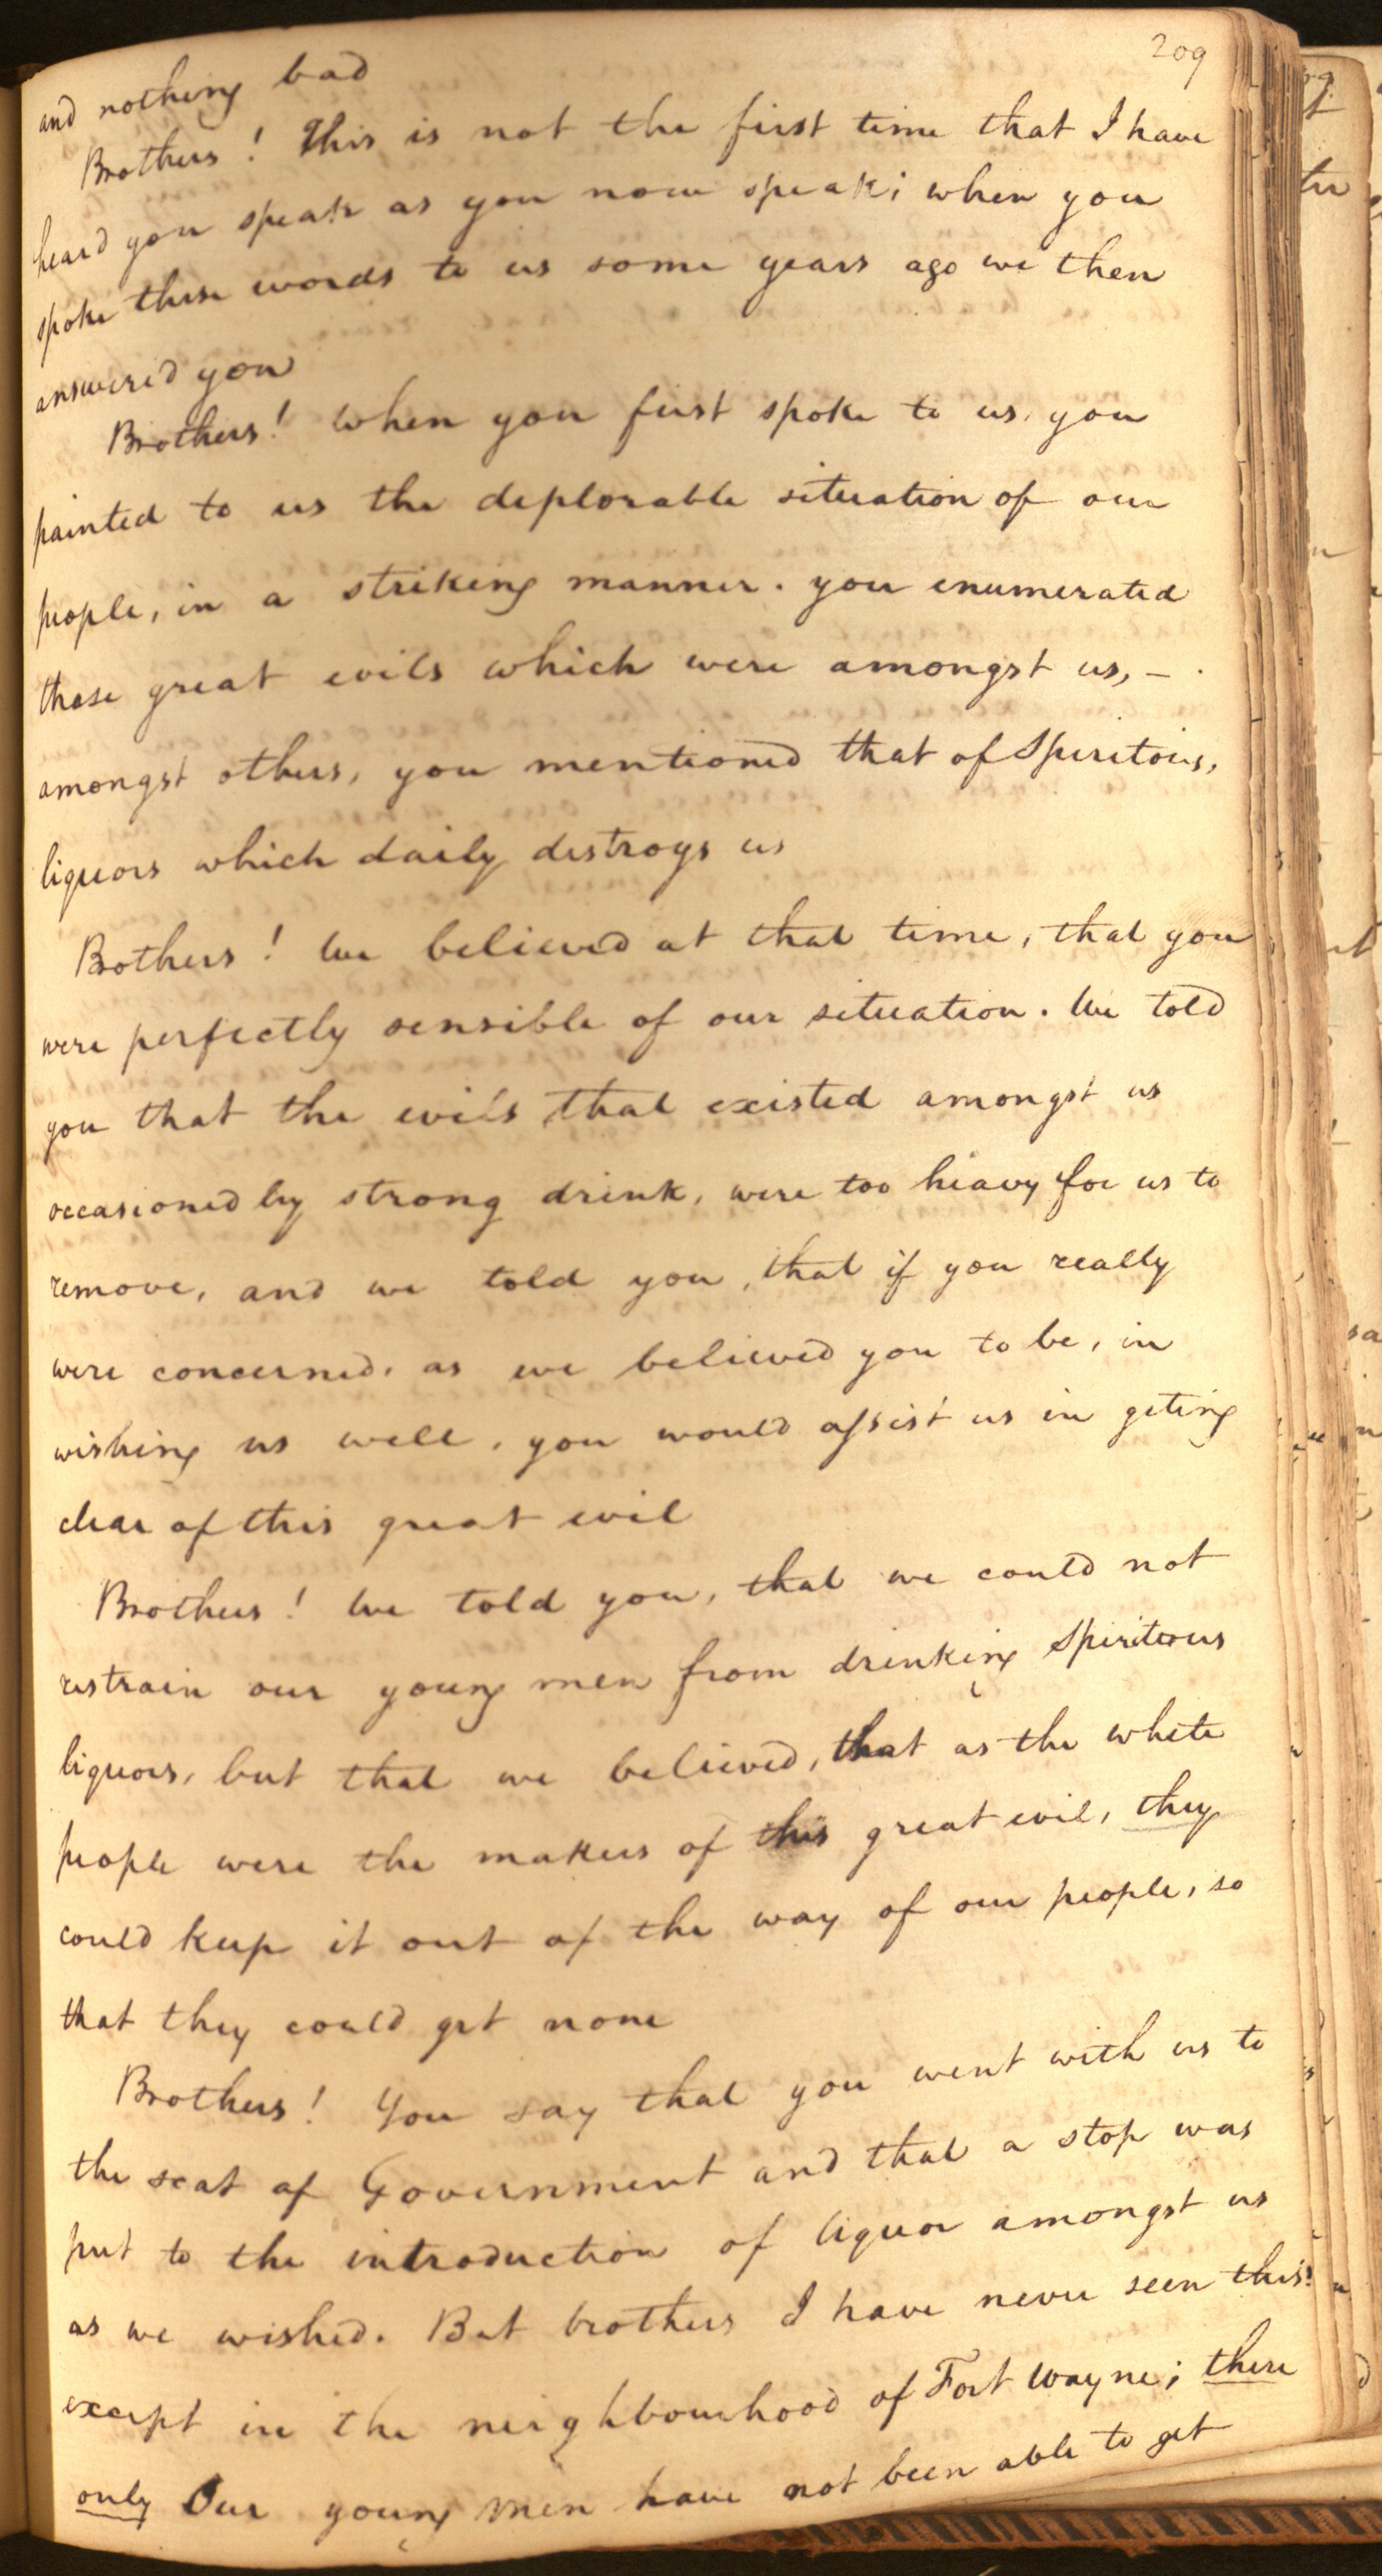 209
and nothing bad
Brothers! This is not the first time that I have
heard you speak as you now speak; when you
spoke these words to us some years ago we then
answered you
Brothers! When you first spoke to us, you
painted to us the deplorable situation of our
people, in a striking manner. you enumerated
those great evils which were amongst us, -
amongst others, you mentioned that of Spiritous,
liquors which daily destroys us
Brothers! We believed at that time, that you
were perfectly sensible of our situation. We told
you that the evils that existed amongst us
occasioned by strong drink, were too heavy for us to
remove, and we told you, that if you really
were concerned, as we believed you to be, in
wishing us well, you would assist us in geting
clear of this great evil
Brothers! We told you, that we could not
restrain our young men from drinking Spiritous
liquors, but that we believed, that as the white
people were the makers of this great evil, they
could keep it out of the way of our people, so
that they could get none
Brothers! You say that you went with us to
the seat of Government and that a stop was
put to the introduction of liquor amongst us
as we wished. But brothers I have never seen this!
except in the neighbourhood of Fort Wayne; there
only Our young men have not been able to get